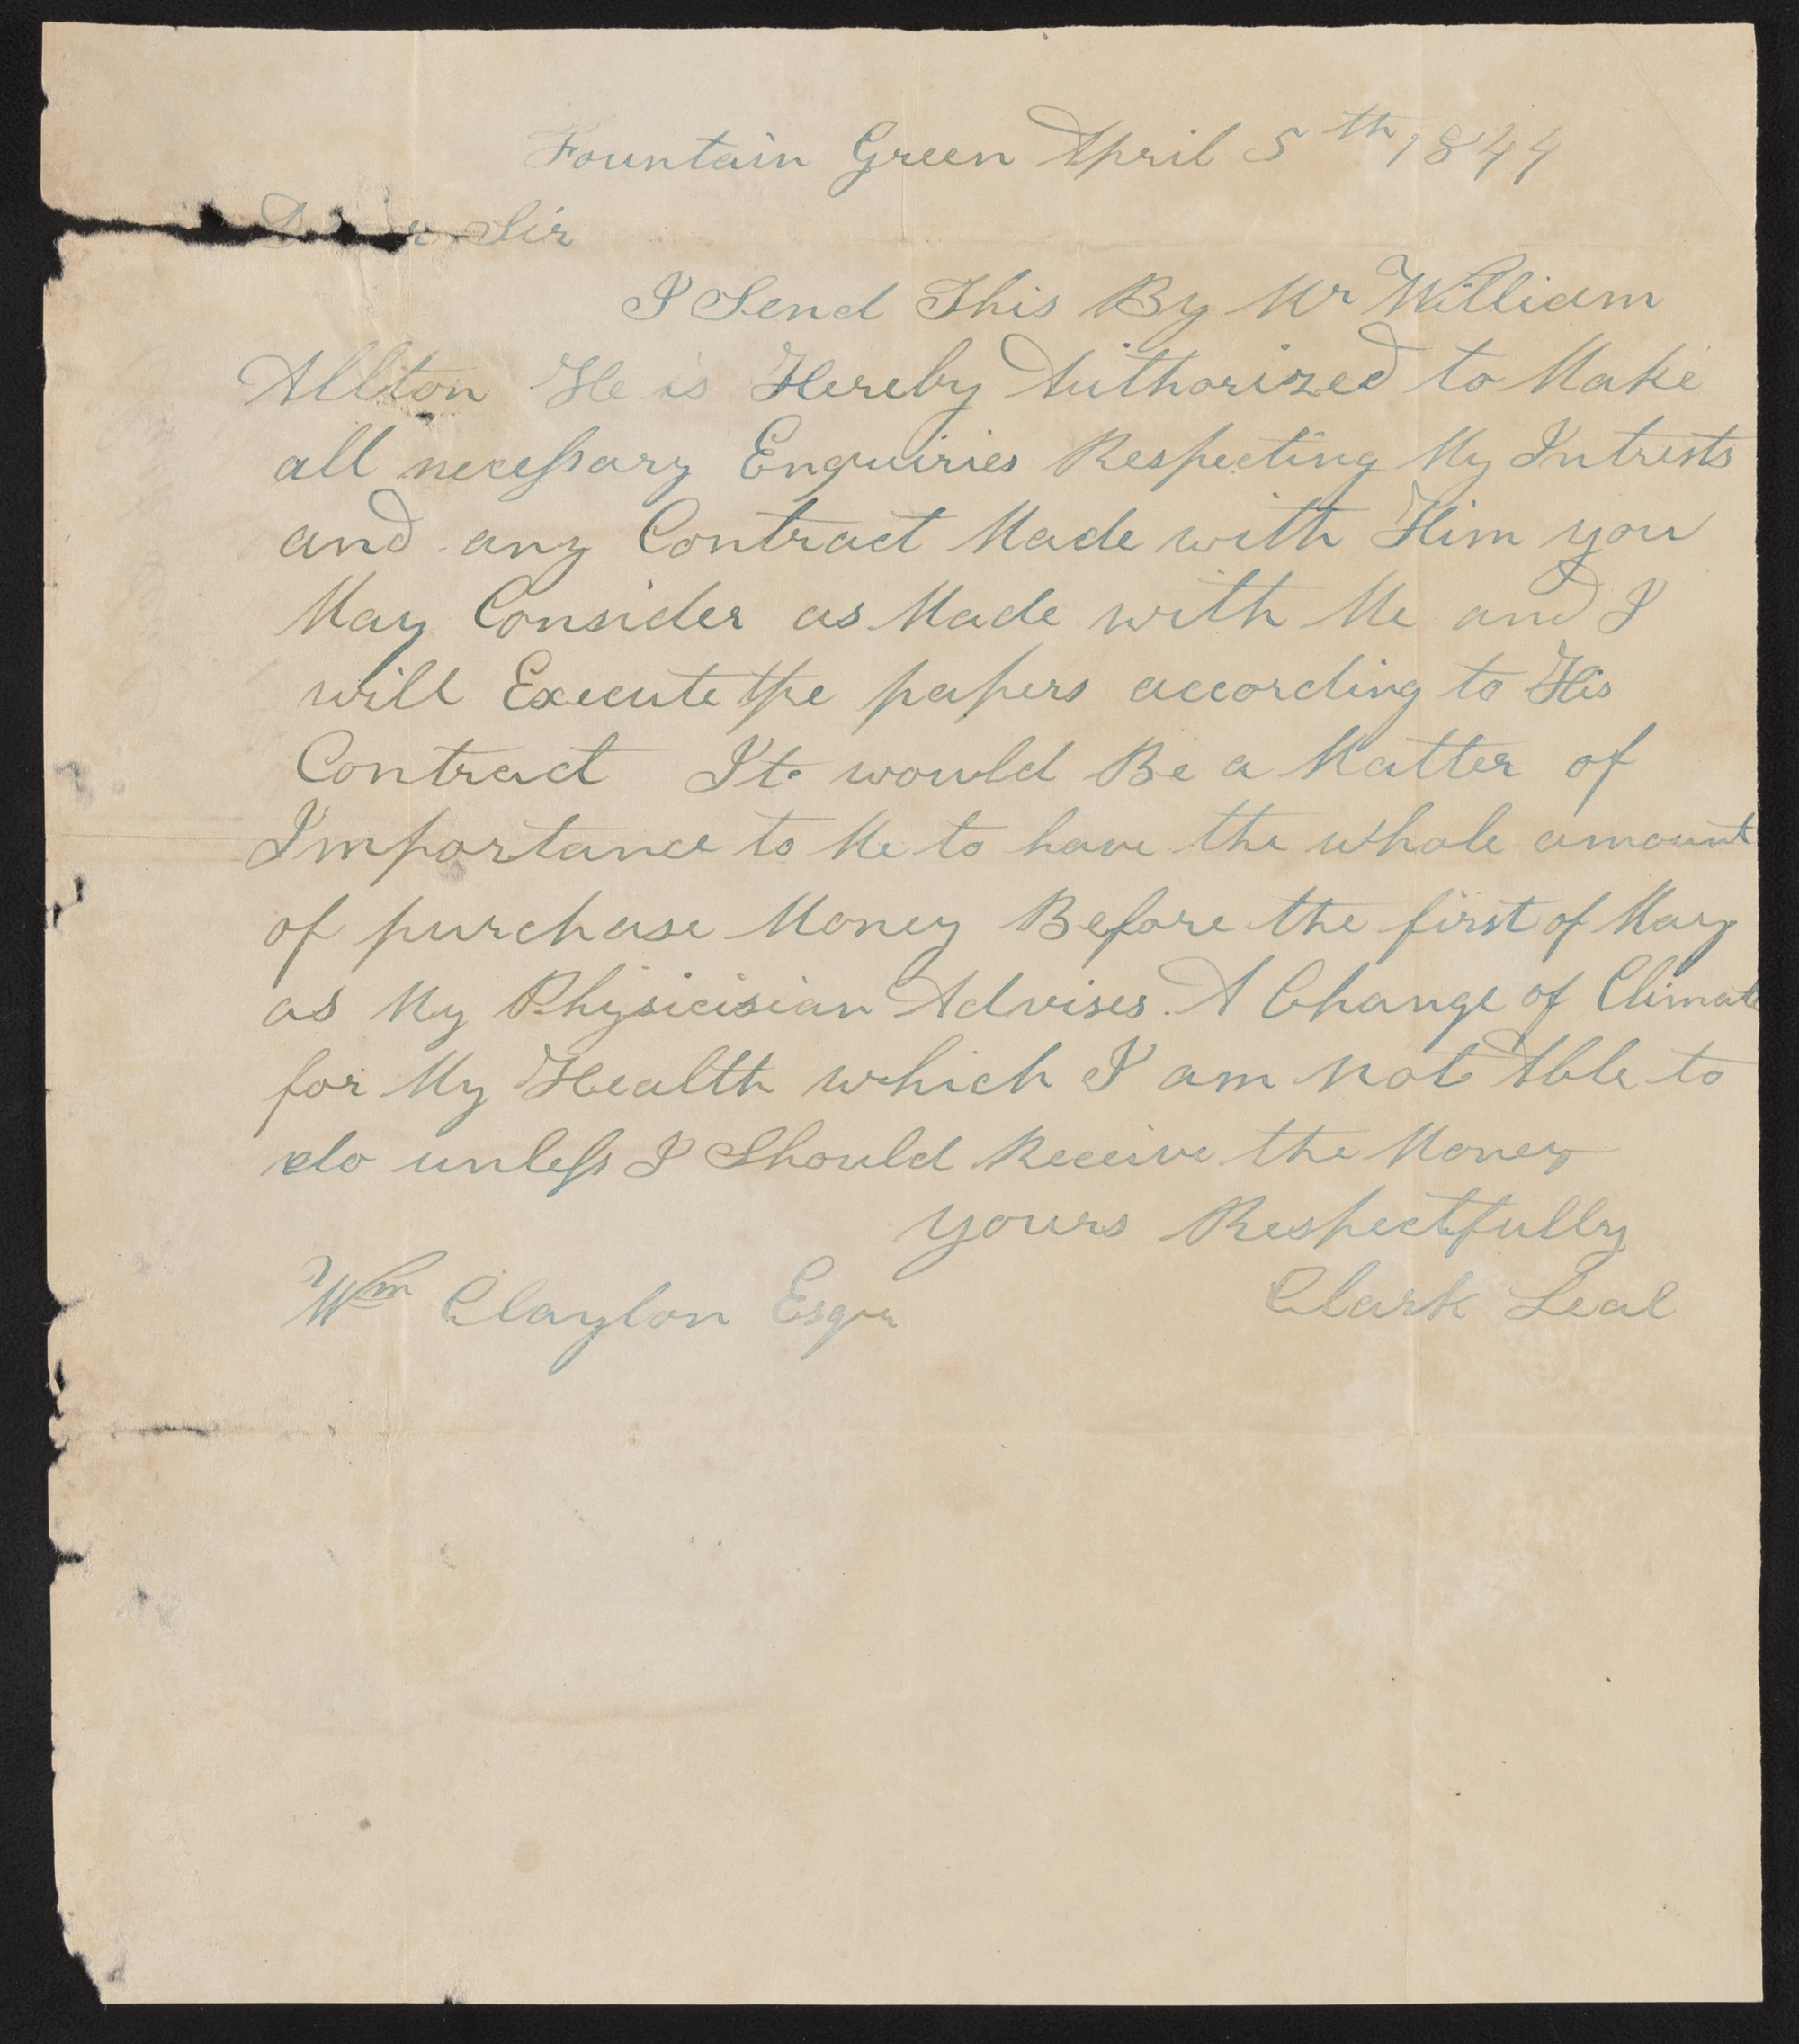 Fountain Green April 5th 1844
Dear Sir
I Send This By Mr William
Allton He is Hereby Authorized to Make
all necessary Enquiries Respecting My Intrists
and any Contract Made with Him you
May Consider as Made with Me and I
will Execute the papers according to His
Contract It would Be a Matter of
Importance to Me to have the whole amount
of purchase Money Before the first of May
as My Physicisian Advises A Change of Climate
for My Health which I am not Able to
do unless I Should Receive the Money
yours Respectfully
Wm Clayton Esqr Clark Leal